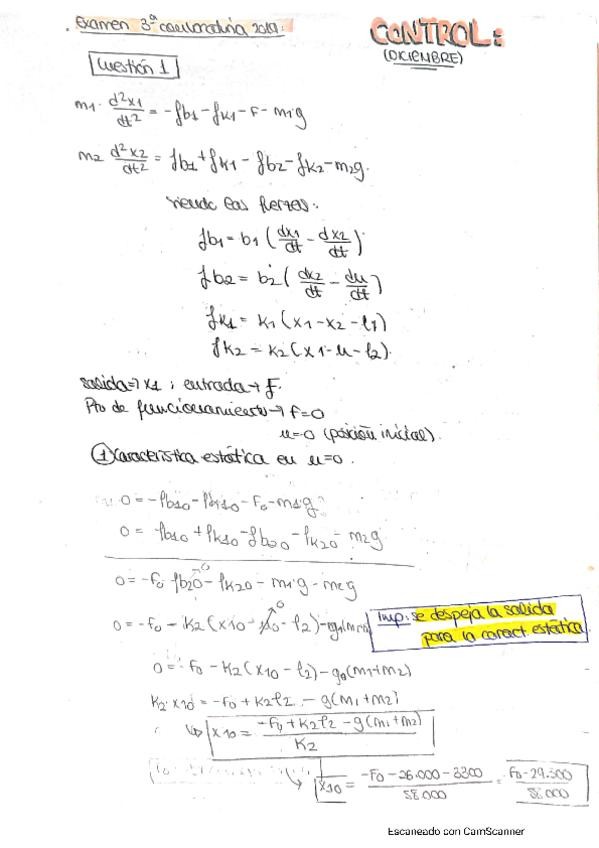 Examen 3ª convocatoria 2019:
CONTROL:
(DICIEMBRE)
Cuestión 1
m1· d²x1/dt² = -fb1 - fk1 - F - m1g
m2 d²x2/dt² = fb1 + fk1 - fb2 - fk2 - m2g.
siendo las fuerzas:
fb1 = b1 (dx1/dt - dx2/dt)
fb2 = b2 (dx2/dt - du/dt)
fk1 = k1 (x1 - x2 - l1)
fk2 = k2 (x1 - u - l2).
salida => x1 ; entrada → F.
Pto de funcionamiento → F=0
u=0 (posición inicial).
① Característica estática en u=0.
0 = -fb10 - fk10 - F0 - m1g
0 = fb10 + fk10 - fb20 - fk20 - m2g
0 = -F0 - fb20 - fk20 - m1g - m2g
0
0 = -F0 - k2 (x10 - u0 - l2) - g(m1+m2)
0
Imp: se despeja la salida
para la caract. estática
0 = -F0 - k2 (x10 - l2) - g(m1+m2)
k2·x10 = -F0 + k2l2 - g(m1+m2)
x10 = (-F0 + k2l2 - g(m1+m2)) / k2
x10 = (-F0 - 26.000 - 3300) / 58.000 = (F0 - 29.300) / 58.000
Escaneado con CamScanner